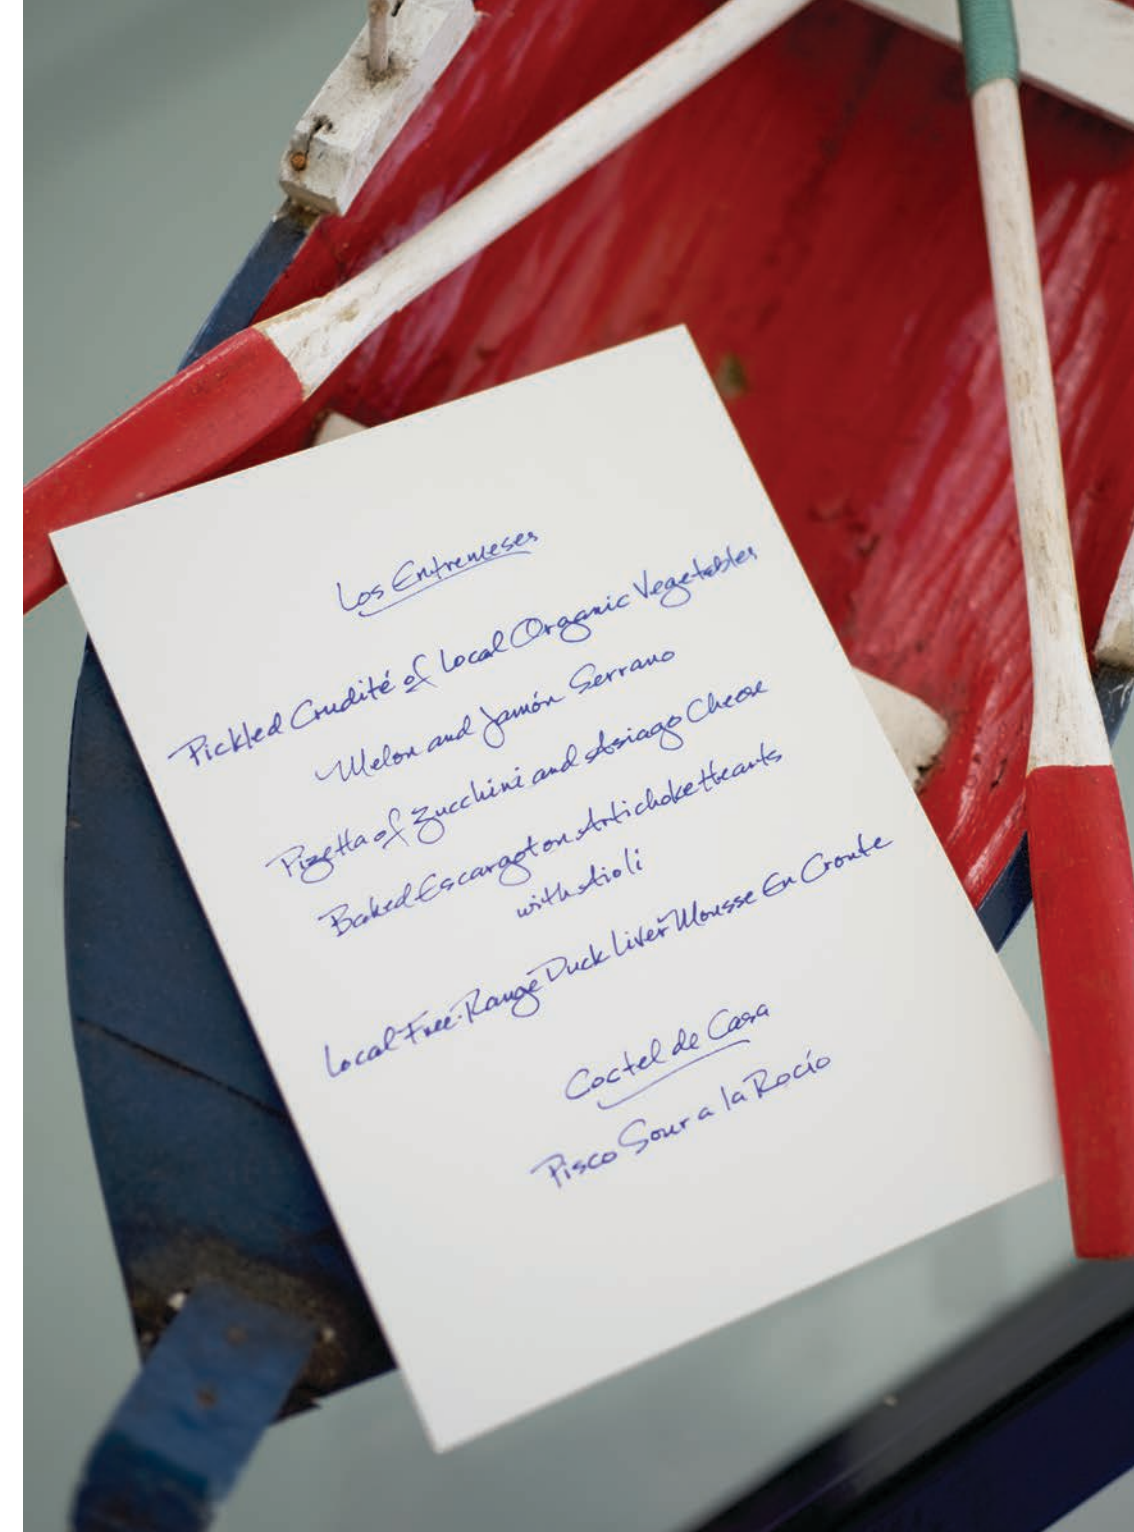 Los Entremeses
Pickled Crudité of Local Organic Vegetables
Melon and Jamón Serrano
Pizetta of Zucchini and Asiago Cheese
Baked Escargot on Artichoke Hearts
with Aioli
Local Free-Range Duck Liver Mousse En Croute
Coctel de Casa
Pisco Sour a la Rocío